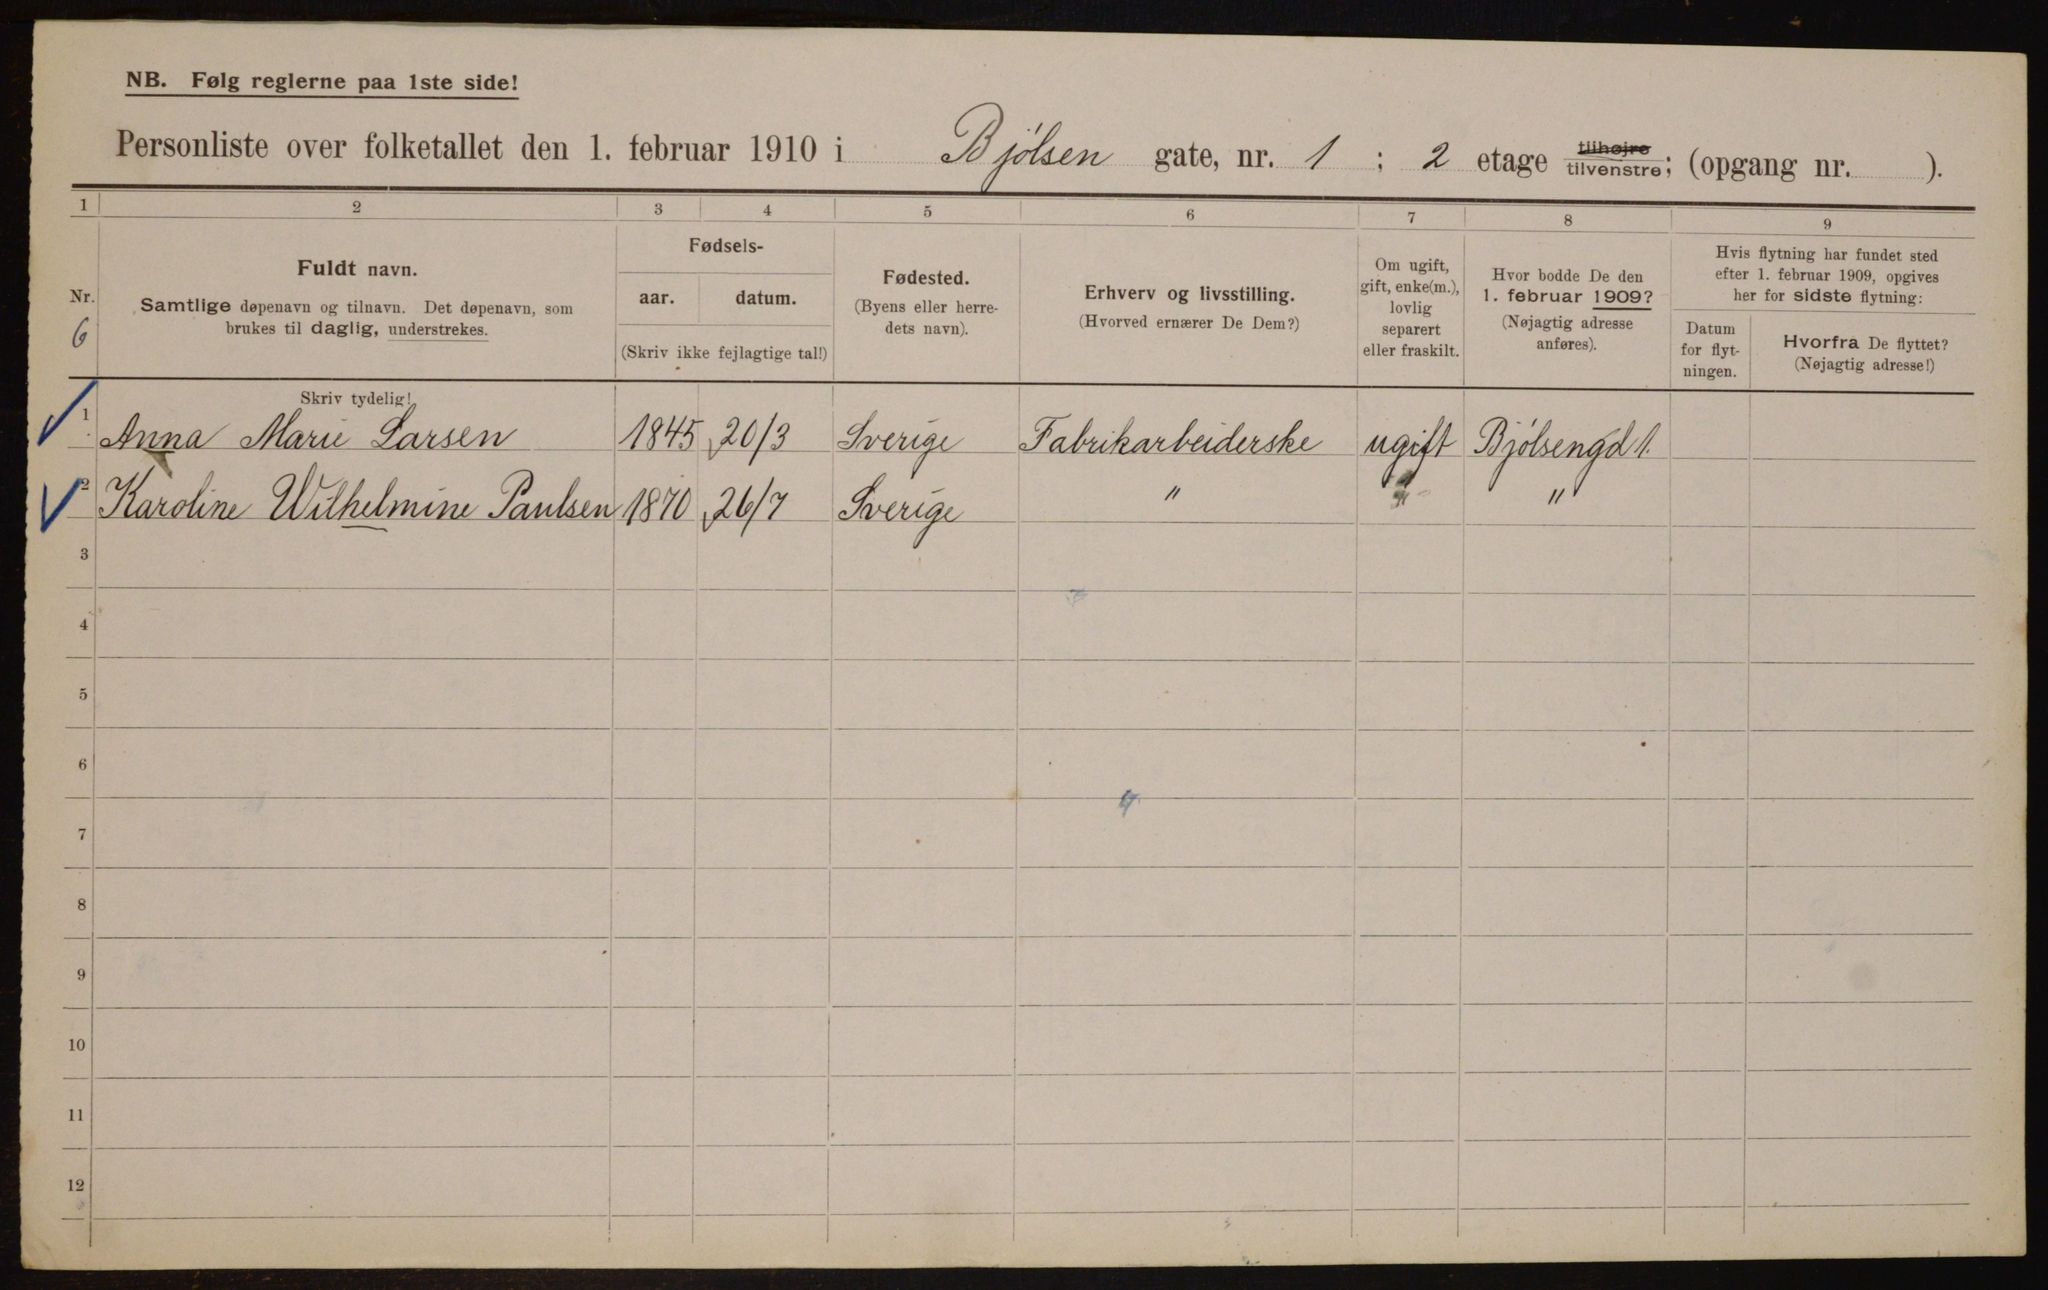 NB. Følg reglerne paa 1ste side!
Personliste over folketallet den 1. februar 1910 i Bjølsen gate, nr. 1 ; 2 etage tilhøjre tilvenstre; (opgang nr. ).
1 2 3 4 5 6 7 8 9
Nr.
6
Fuldt navn.
Samtlige døpenavn og tilnavn. Det døpenavn, som
brukes til daglig, understrekes.
Fødsels-
aar. datum.
(Skriv ikke fejlagtige tal!)
Fødested.
(Byens eller herre-
dets navn).
Erhverv og livsstilling.
(Hvorved ernærer De Dem?)
Om ugift,
gift, enke(m.),
lovlig
separert
eller fraskilt.
Hvor bodde De den
1. februar 1909?
(Nøjagtig adresse
anføres).
Hvis flytning har fundet sted
efter 1. februar 1909, opgives
her for sidste flytning:
Datum
for flyt-
ningen.
Hvorfra De flyttet?
(Nøjagtig adresse!)
Skriv tydelig!
1 Anna Marie Larsen 1845 20/3 Sverige Fabrikarbeiderske ugift Bjølsengd 1.
2 Karoline Wilhelmine Paulsen 1870 26/7 Sverige " " "
3
4
5
6
7
8
9
10
11
12